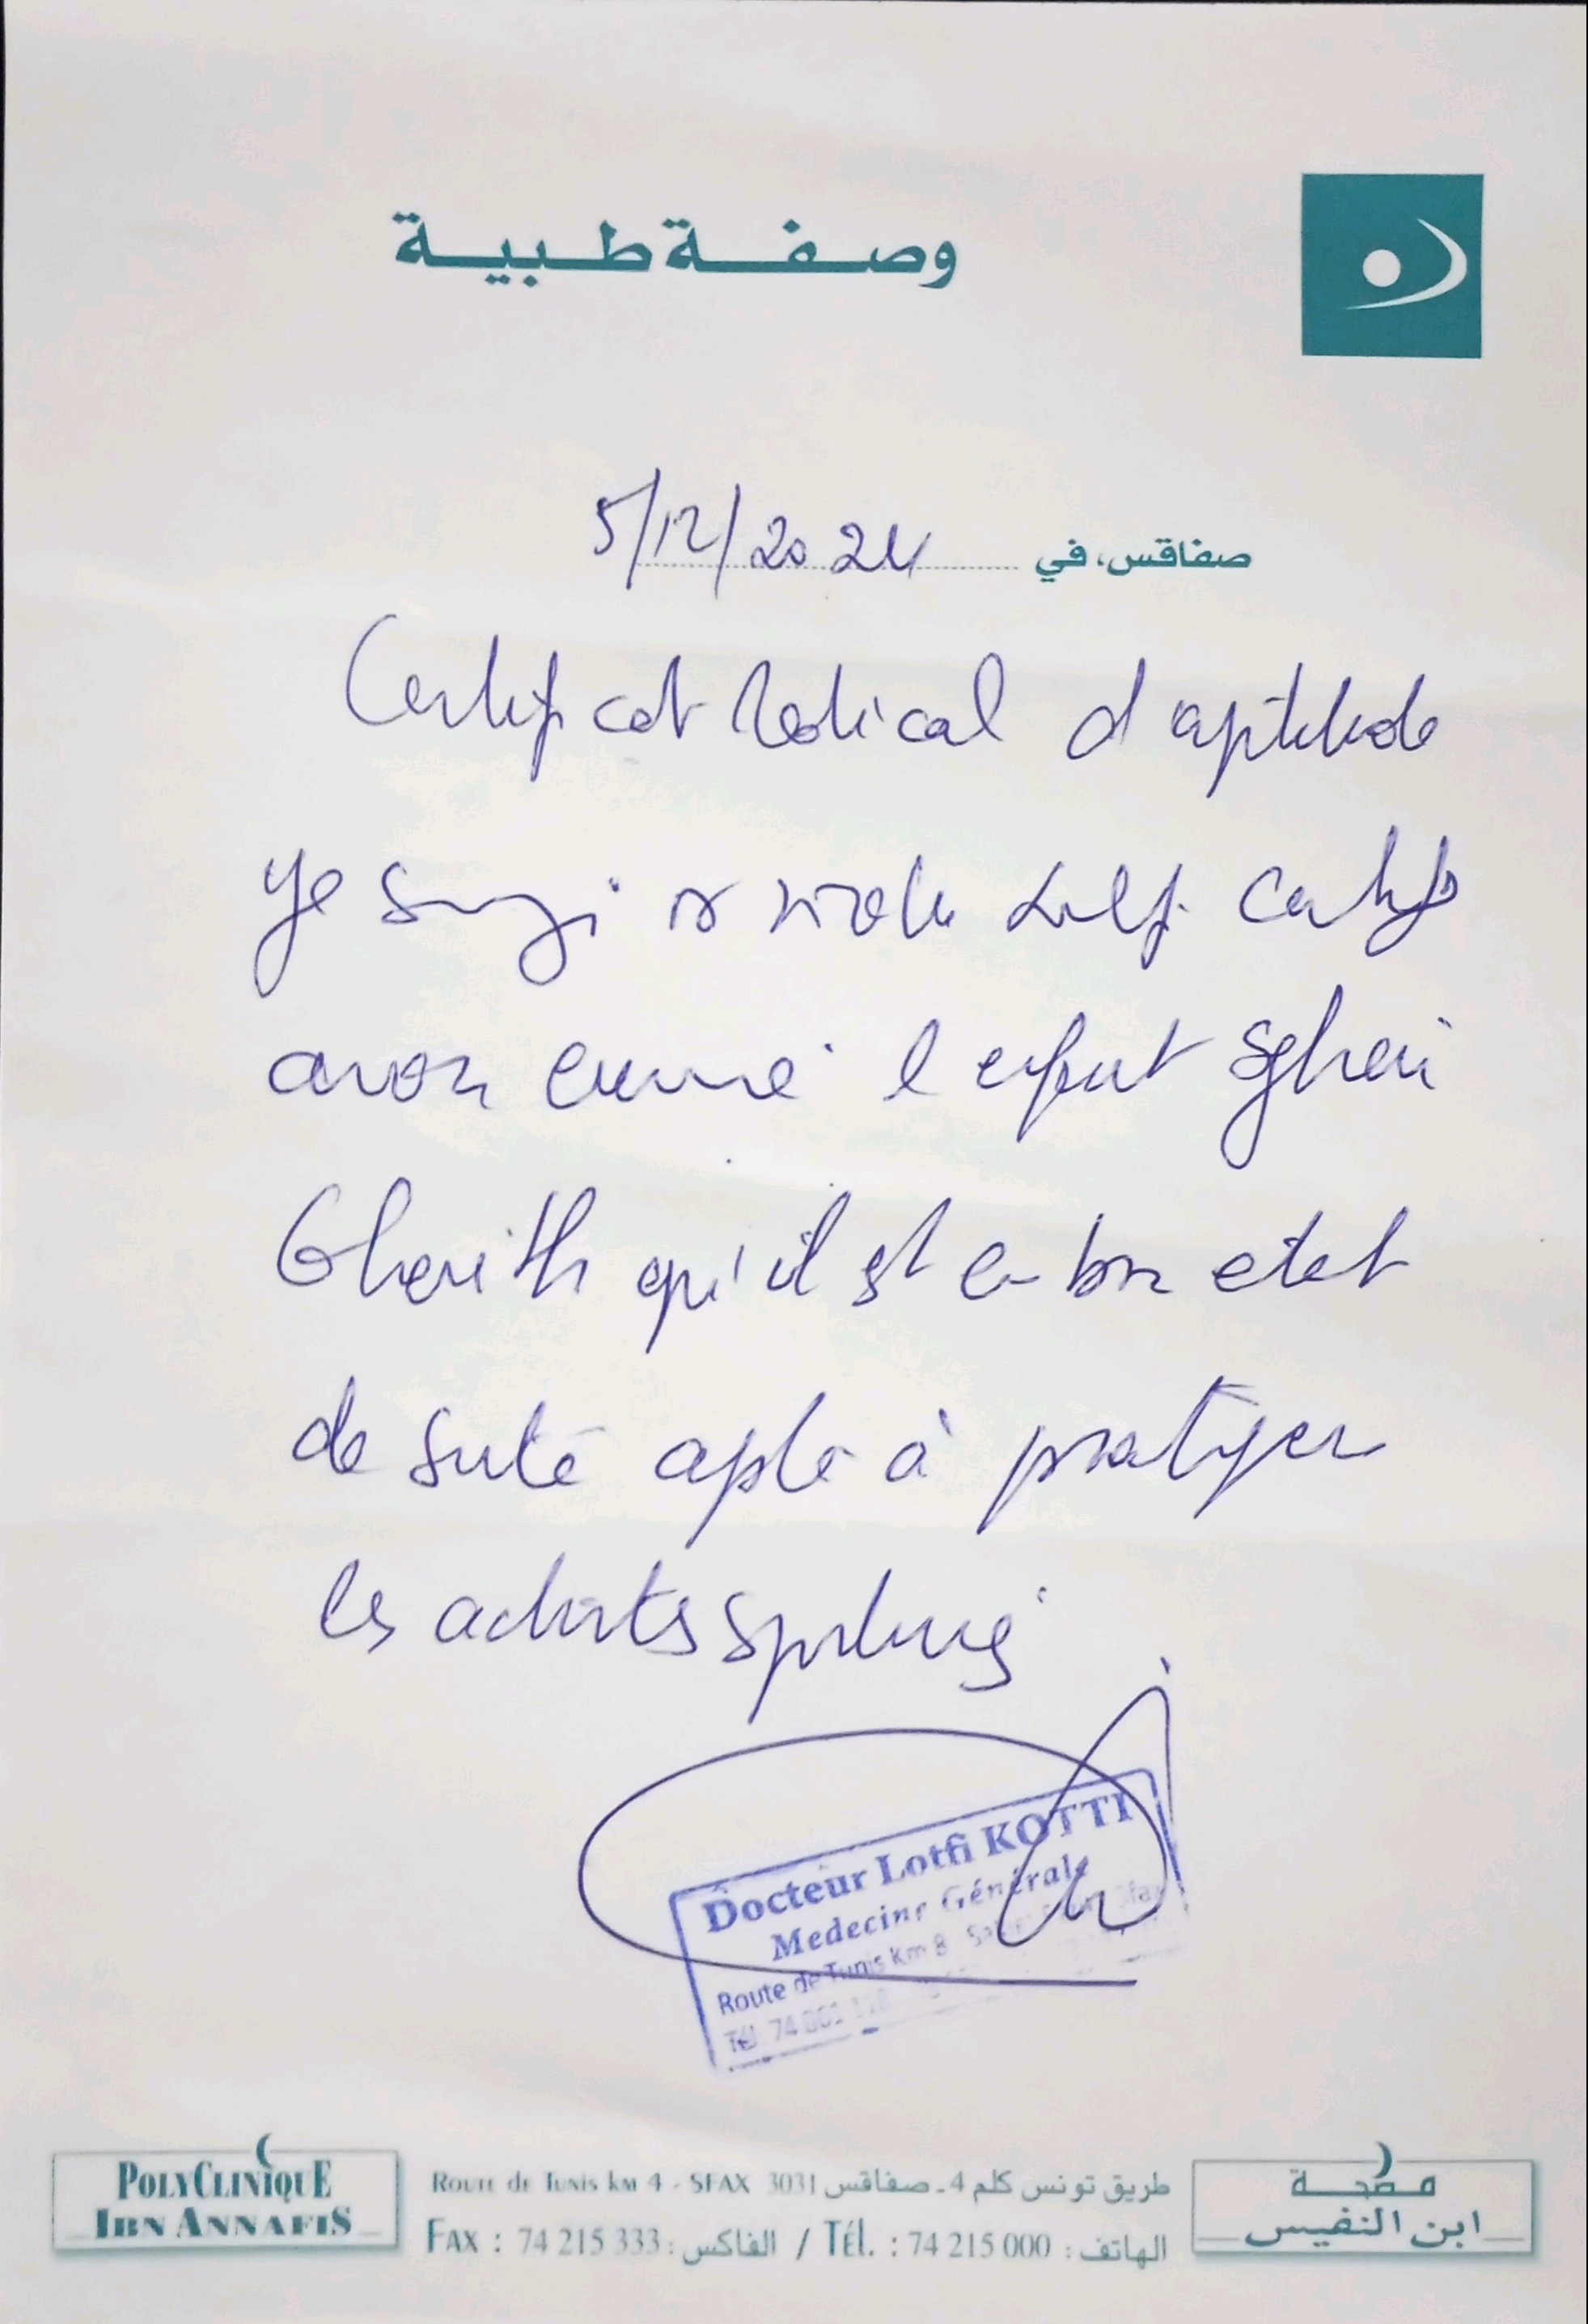 وصفة طبية
صفاقس، في 5/12/2024
Certificat Medical d'aptitude
Je soussigné Kotti Lotfi certifie
avoir examiné l'enfant Sghaier
Ghaith qu'il est en bon etat
de santé apte à pratiquer
les activités sportives
Docteur Lotfi KOTTI
Medecine Générale
Route de Tunis Km 8
Tél 74
POLYCLINIQUE
IBN ANNAFIS
Route de Tunis km 4 - SFAX 3031 طريق تونس كلم 4 ـ صفاقس
Fax : 74 215 333 : الفاكس / Tél. : 74 215 000 : الهاتف
مصحة
ابن النفيس